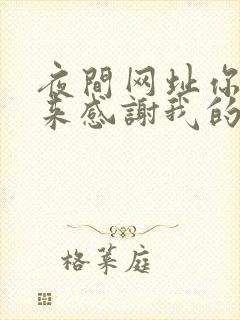 夜間网址你
来感謝我的
格菜庭